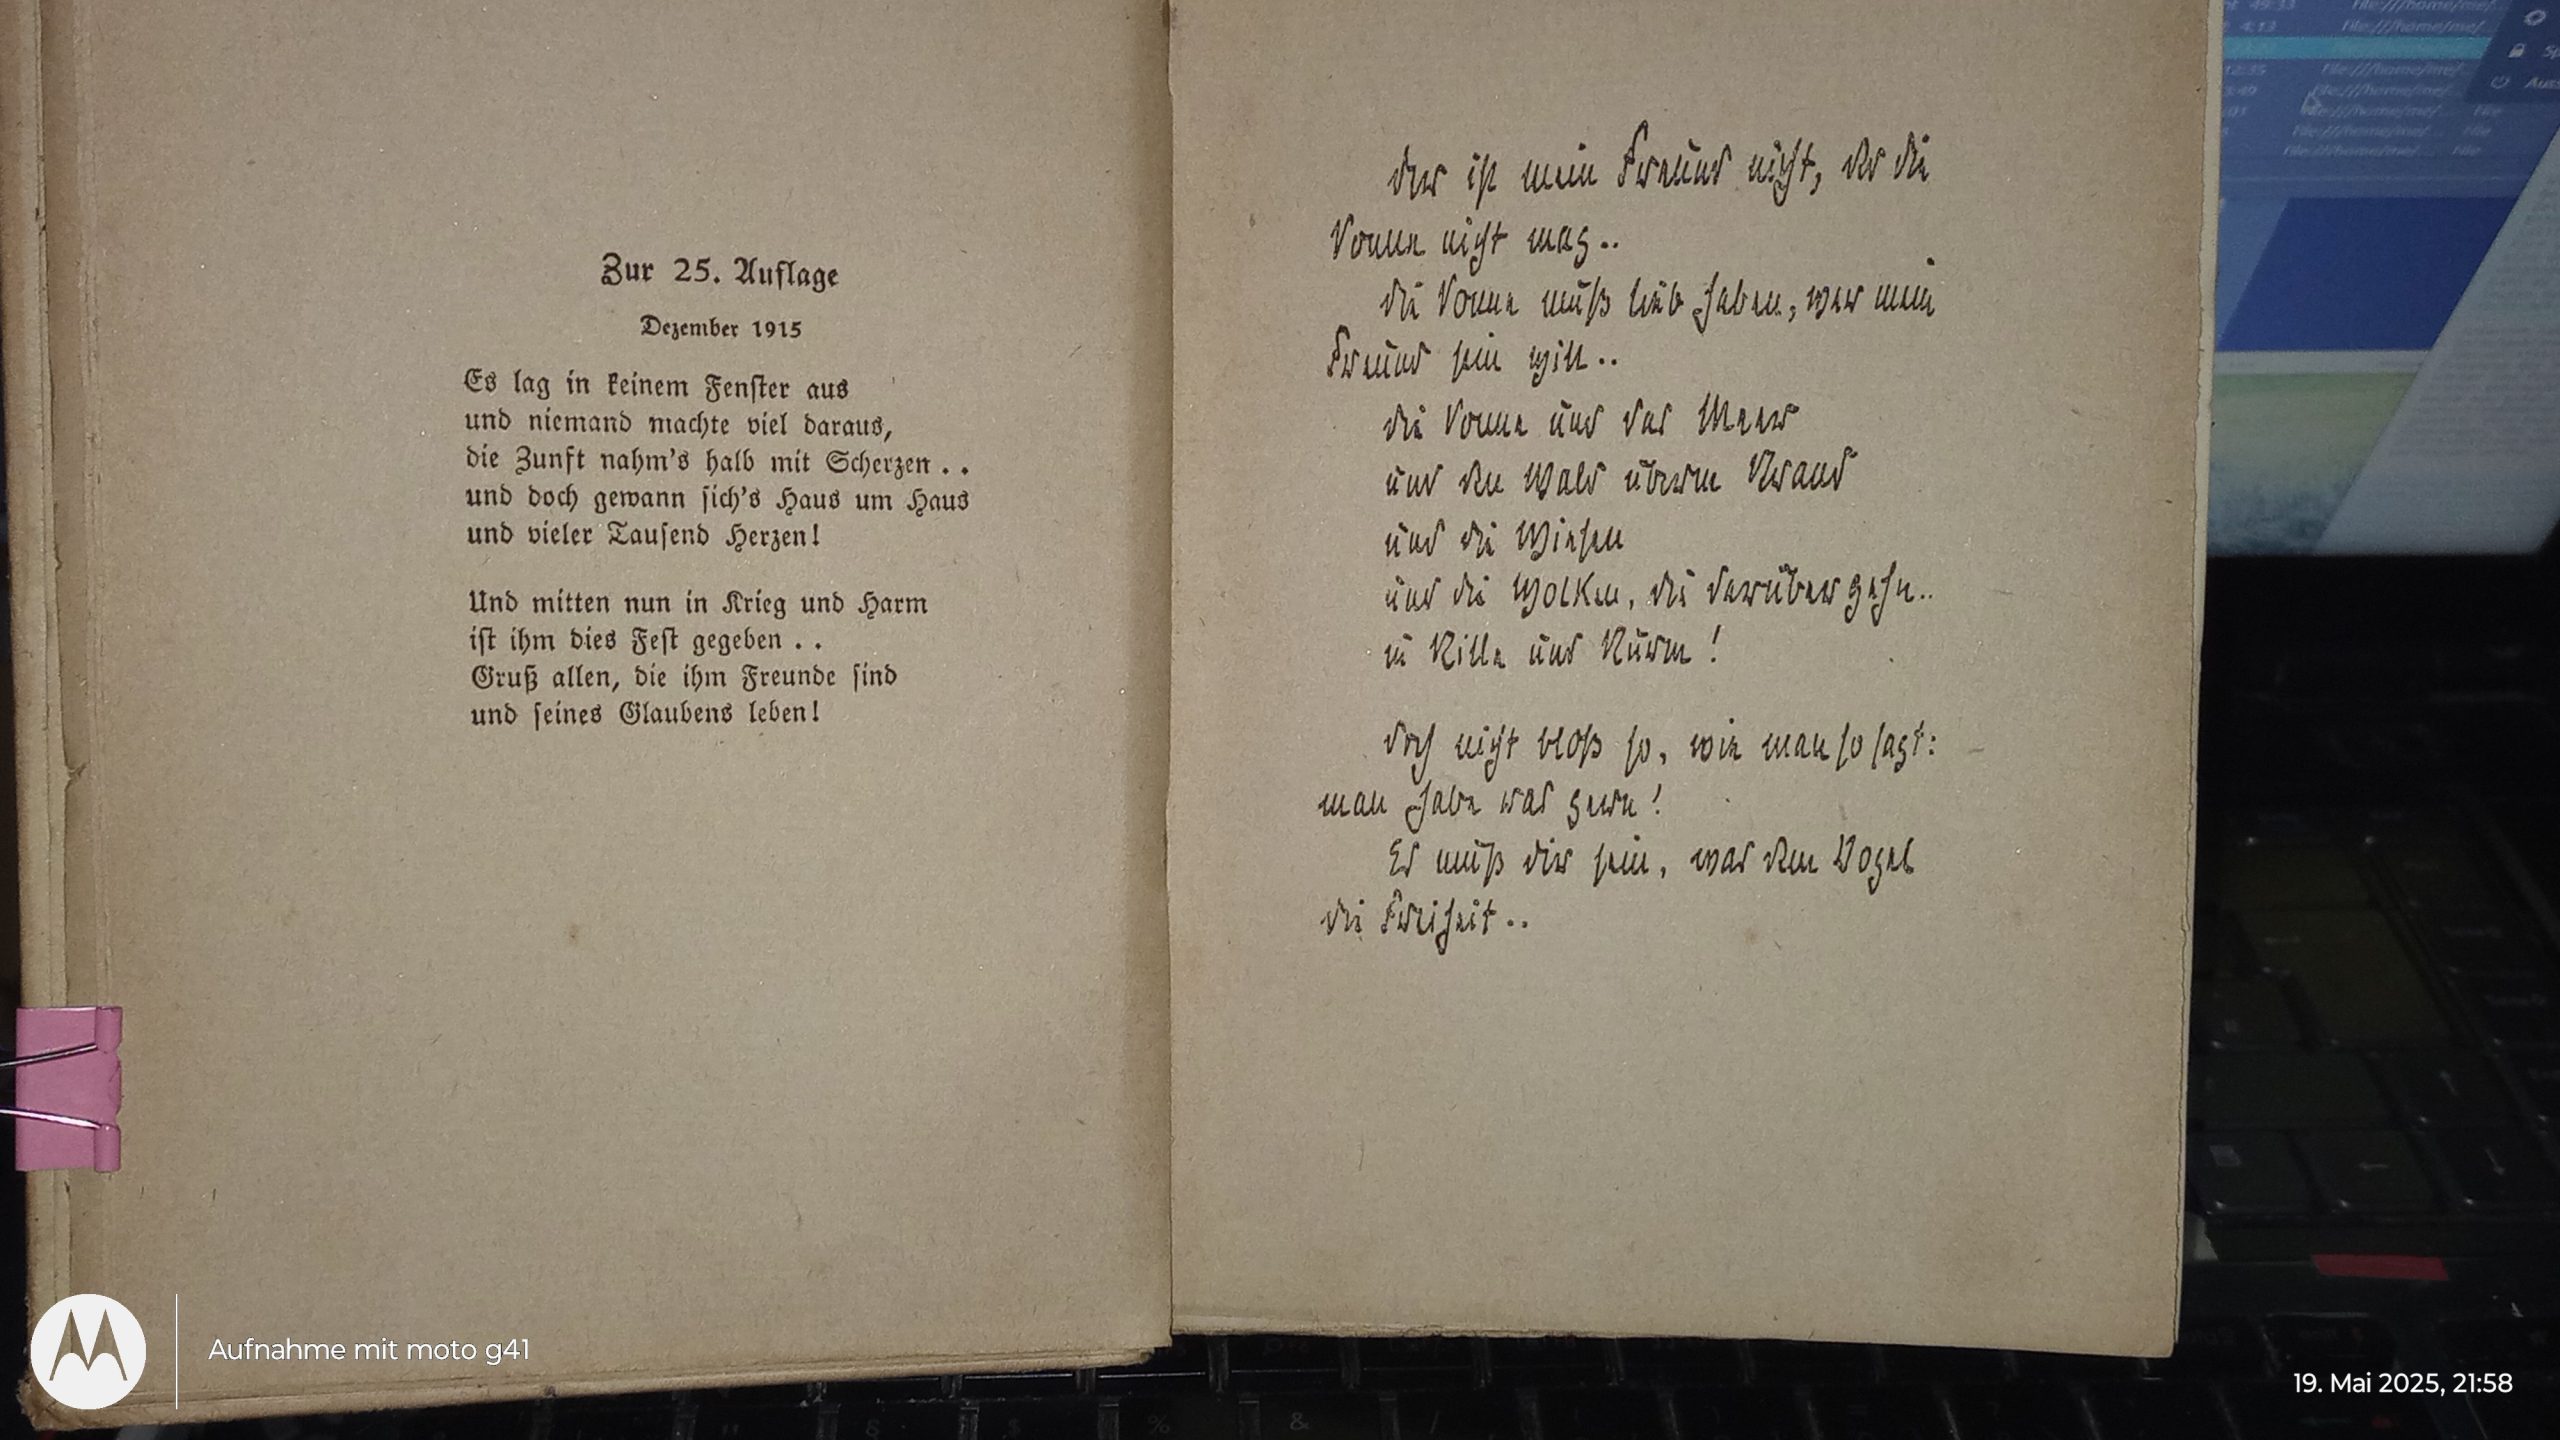 Zur 25. Auflage
Dezember 1915
Es lag in keinem Fenster aus
und niemand machte viel daraus,
die Zunft nahm's halb mit Scherzen . .
und doch gewann sich's Haus um Haus
und vieler Tausend Herzen!
Und mitten nun in Krieg und Harm
ist ihm dies Fest gegeben . .
Gruß allen, die ihm Freunde sind
und seines Glaubens leben!
der ist mein Freund nicht, der die
Sonne nicht mag..
die Sonne muß lieb haben, wer mein
Freund sein will..
die Sonne und das Meer
und den Wald überm Strand
und die Wiesen
und die Wolken, die darüber gehn..
in Stille und Sturm!
doch nicht bloß so, wie man so sagt:
man habe was gern!
Es muß dir sein, was dem Vogel
die Freiheit..
Aufnahme mit moto g41
19. Mai 2025, 21:58